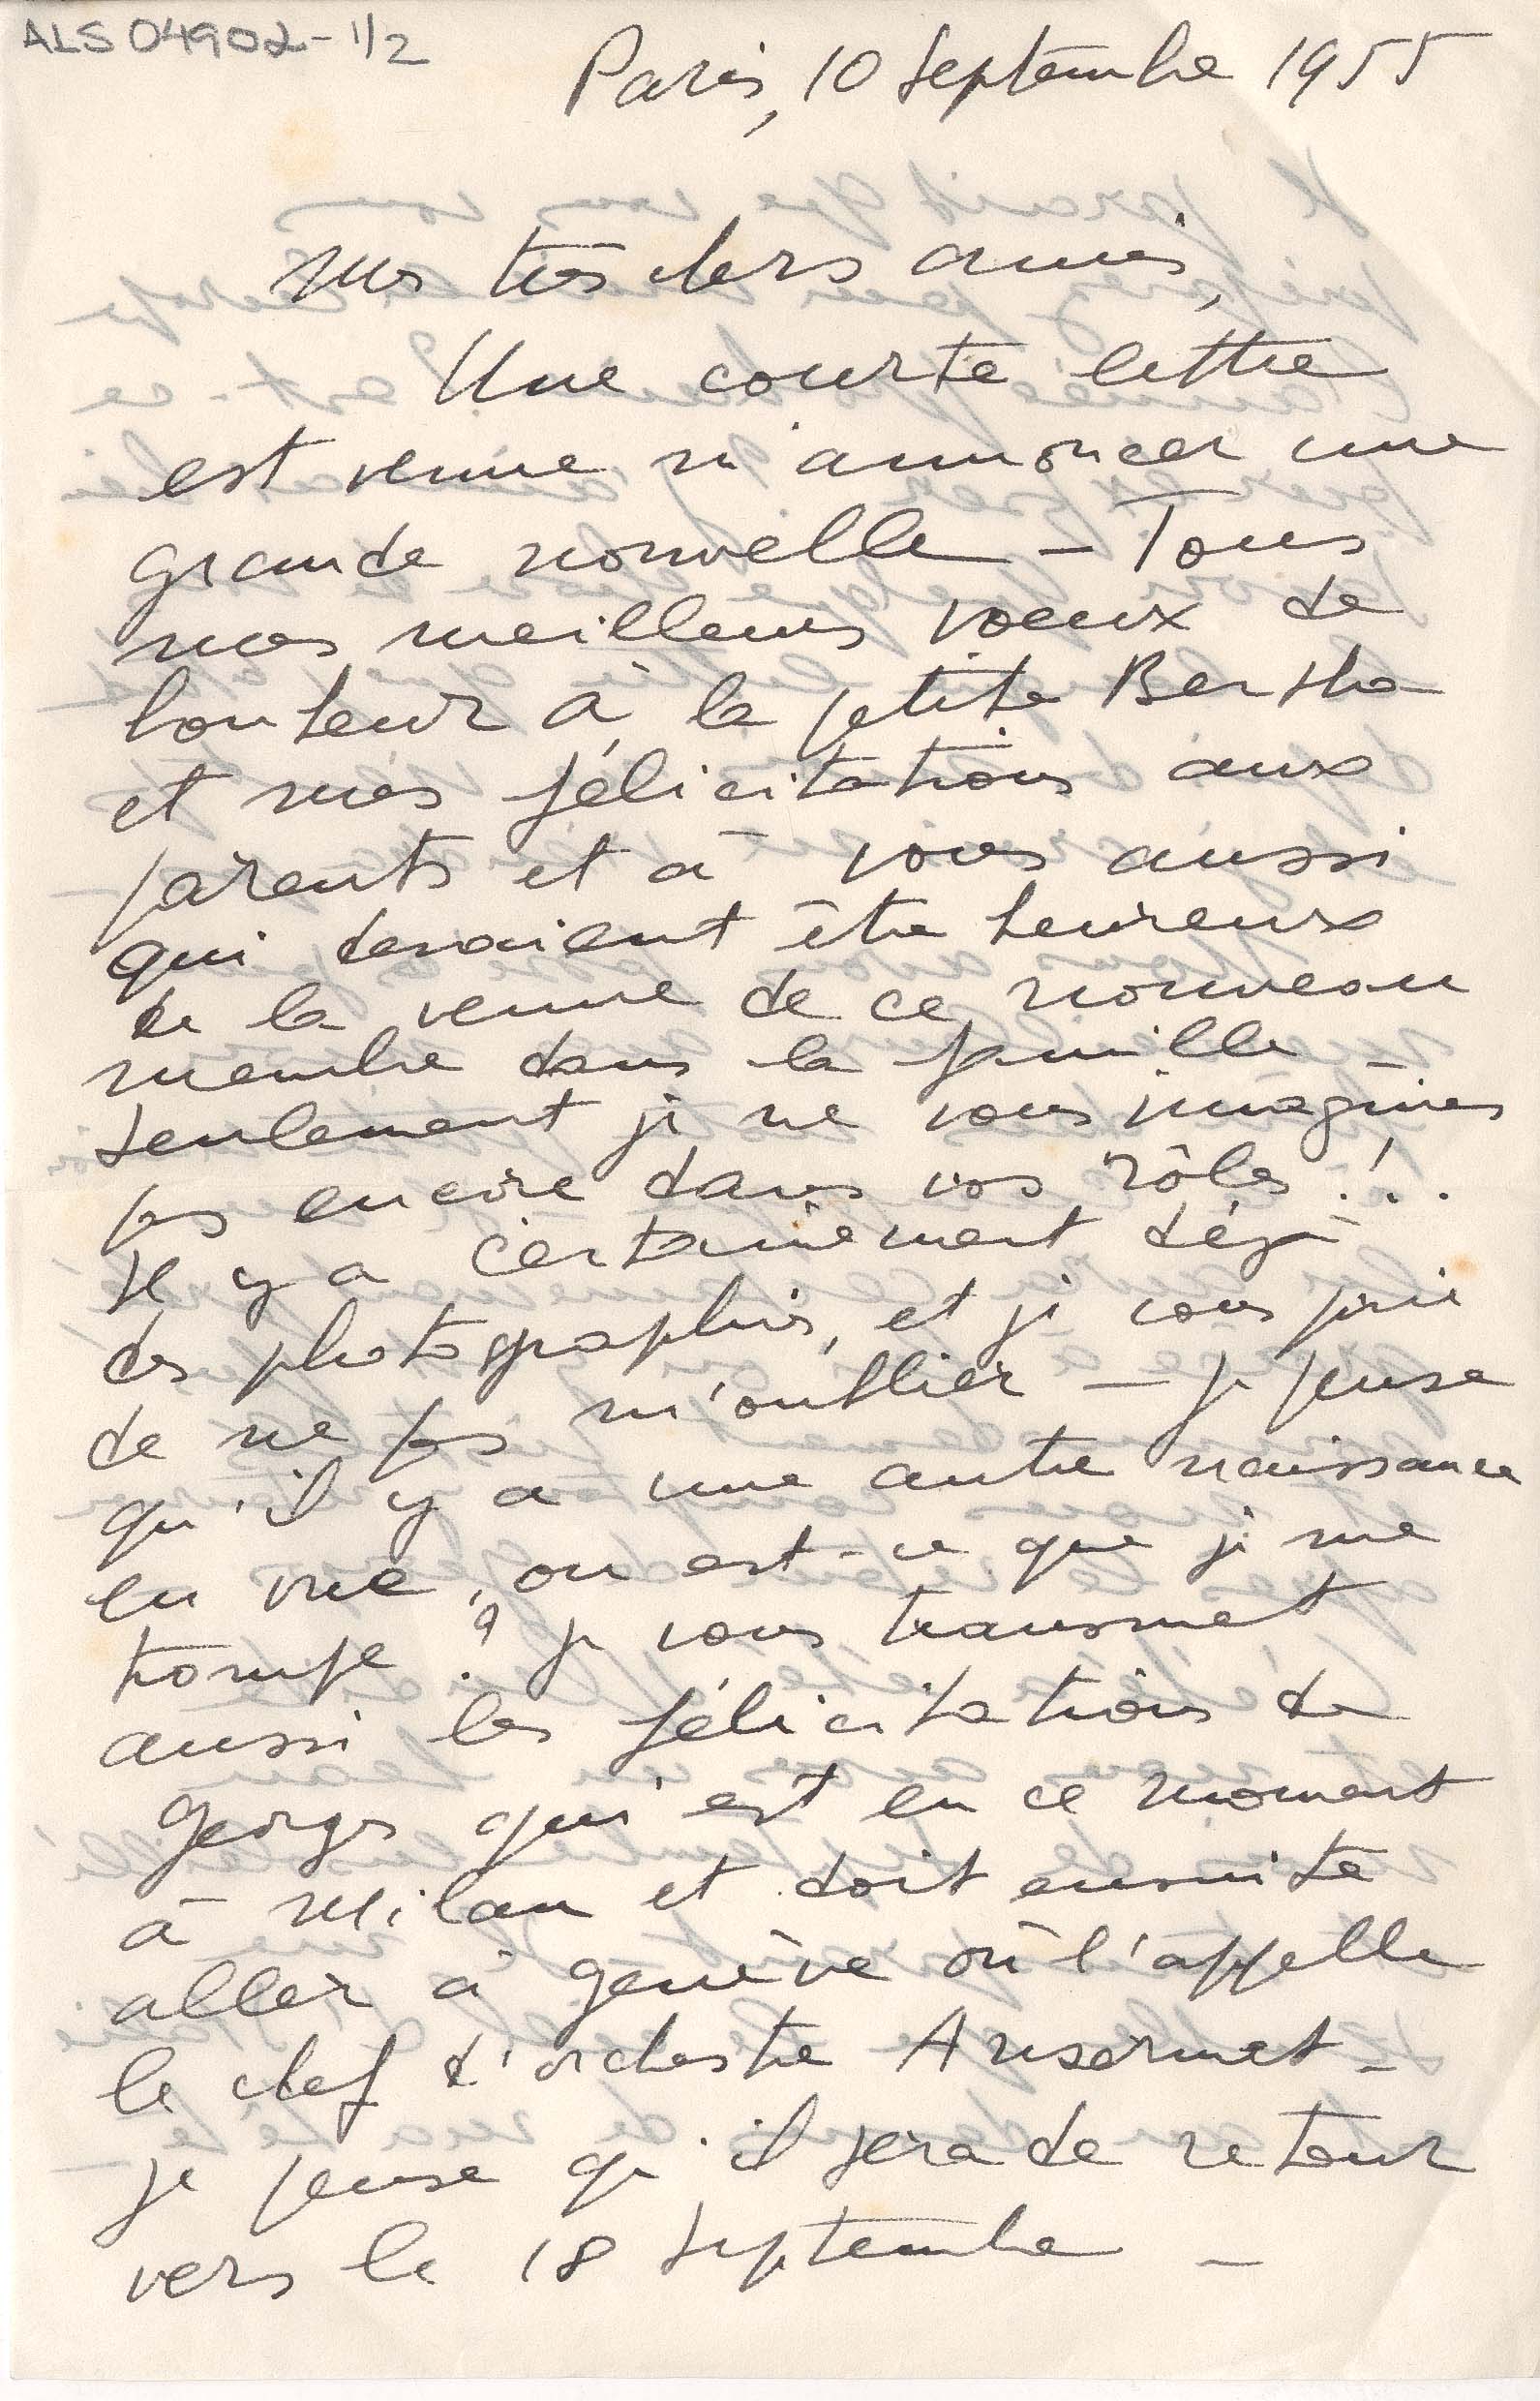 ALS 04902-1/2
Paris, 10 septembre 1955
Mes très chers amis,
Une courte lettre
est venue m'annoncer une
grande nouvelle – Tous
mes meilleurs voeux de
bonheur à la petite Bertha
et mes félicitations aux
parents et à vous aussi
qui devaient être heureux
de la venue de ce nouveau
membre dans la famille –
seulement je ne vous imagines
pas encore dans vos rôles !..
Il y a certainement déjà
des photographies, et je vous prie
de ne pas m'oublier – je pense
qu'il y a une autre naissance
en vue, ou est-ce que je me
trompe ? je vous transmet
aussi les félicitations de
Georges qui est en ce moment
à Milan et doit ensuite
aller à Genève où l'appelle
le chef d'orchestre Ansermet –
je pense qu'il sera de retour
vers le 18 septembre –